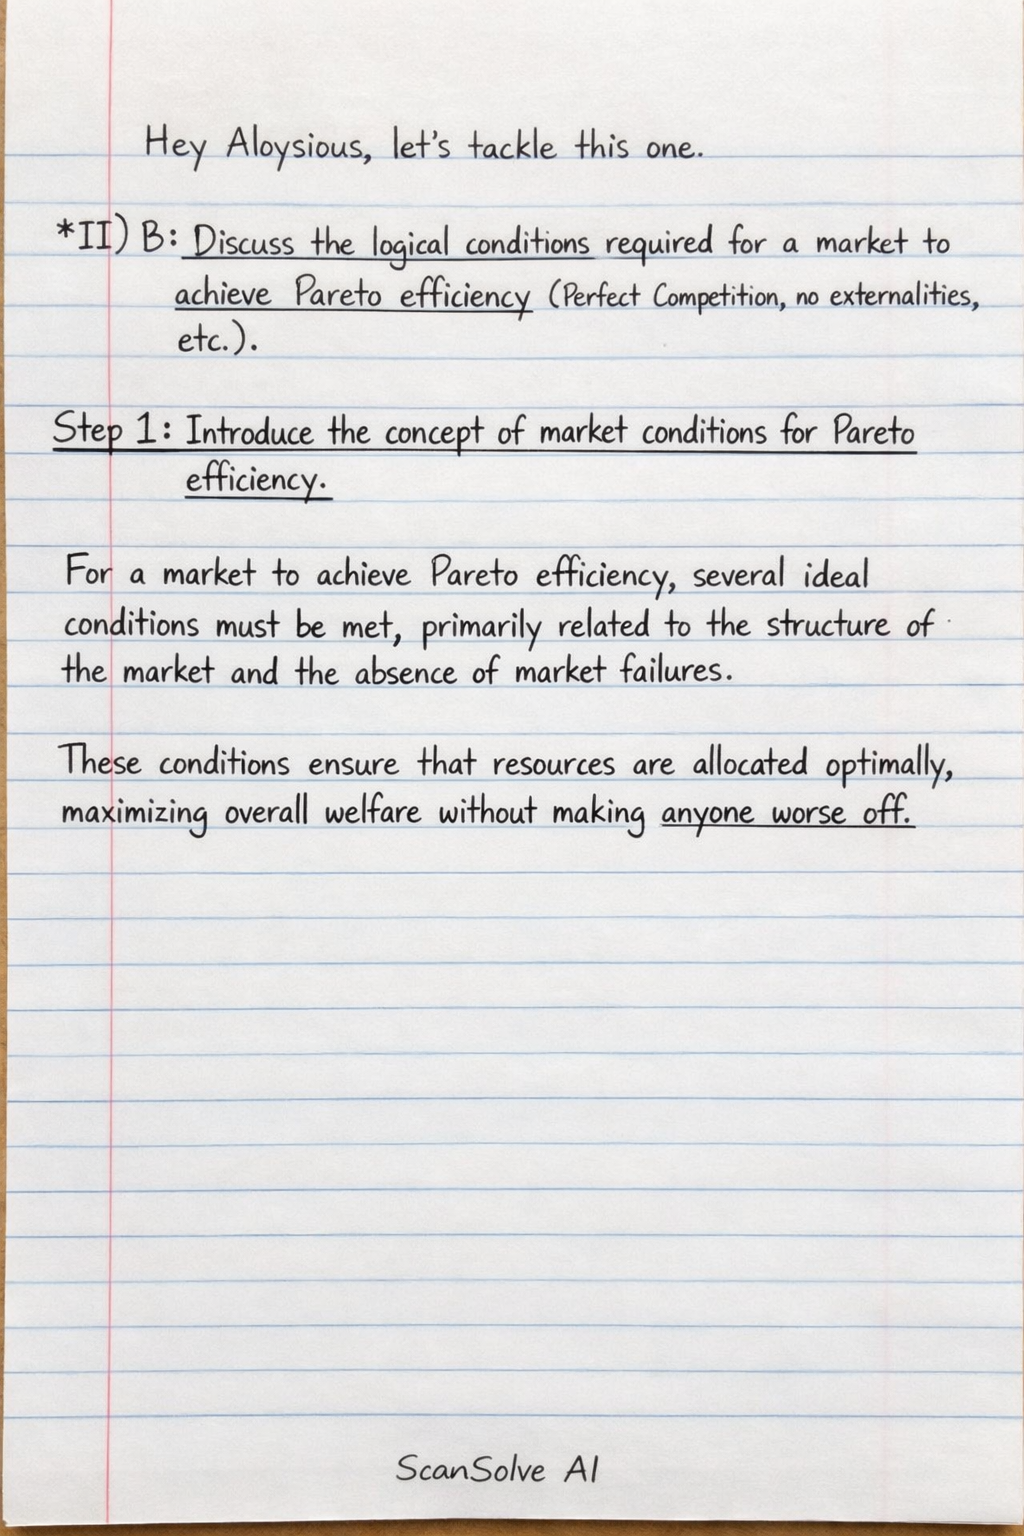 Hey Aloysious, let's tackle this one.
*II) B: Discuss the logical conditions required for a market to
achieve Pareto efficiency (Perfect Competition, no externalities,
etc.).
Step 1: Introduce the concept of market conditions for Pareto
efficiency.
For a market to achieve Pareto efficiency, several ideal
conditions must be met, primarily related to the structure of
the market and the absence of market failures.
These conditions ensure that resources are allocated optimally,
maximizing overall welfare without making anyone worse off.
ScanSolve AI